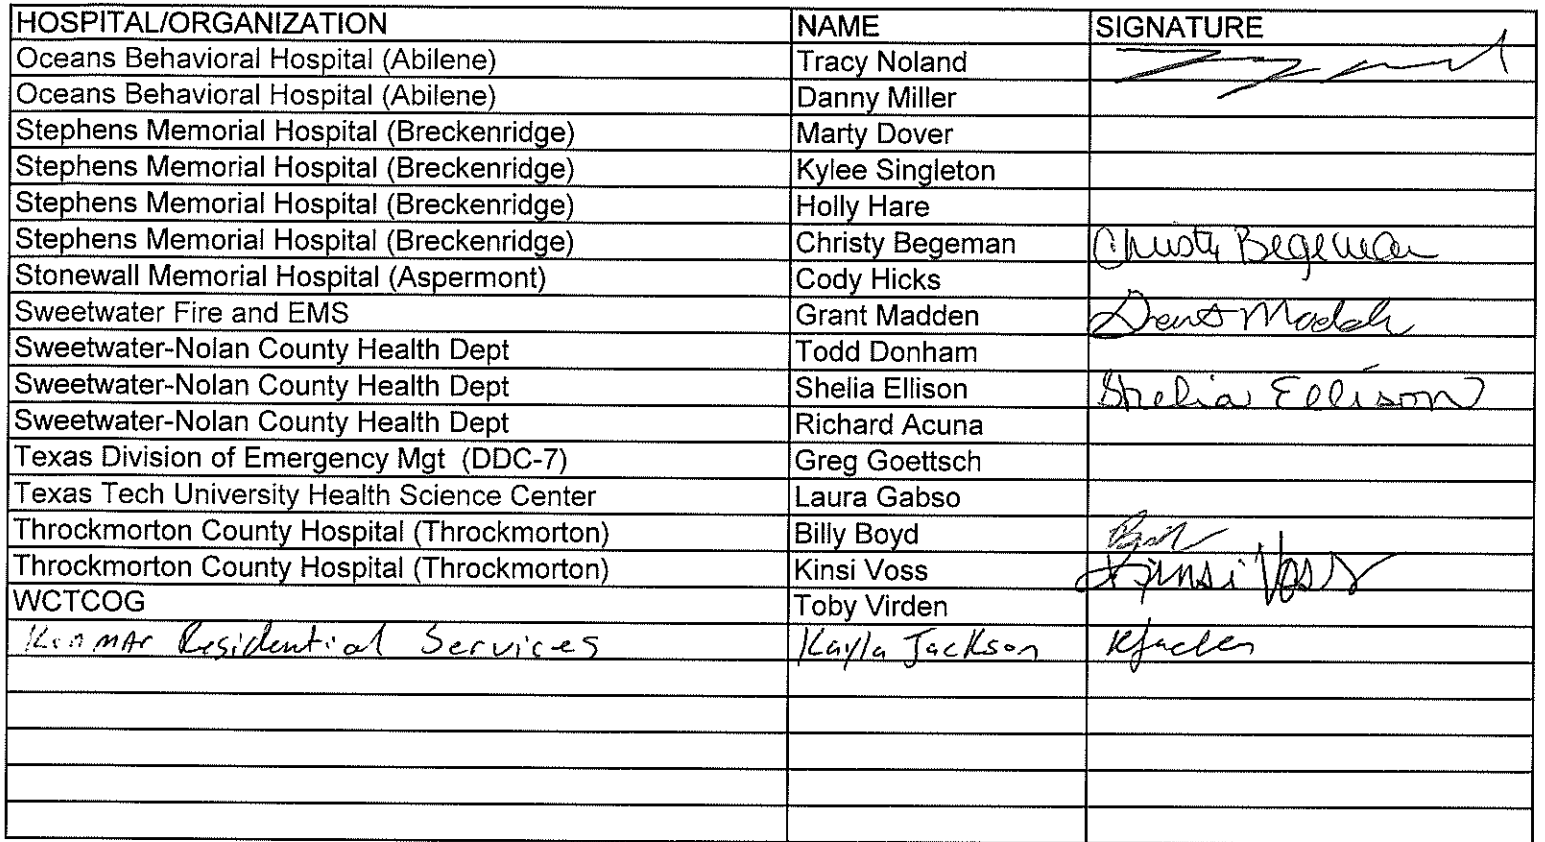 HOSPITAL/ORGANIZATION NAME SIGNATURE
Oceans Behavioral Hospital (Abilene) Tracy Noland
Oceans Behavioral Hospital (Abilene) Danny Miller
Stephens Memorial Hospital (Breckenridge) Marty Dover
Stephens Memorial Hospital (Breckenridge) Kylee Singleton
Stephens Memorial Hospital (Breckenridge) Holly Hare
Stephens Memorial Hospital (Breckenridge) Christy Begeman Christy Begeman
Stonewall Memorial Hospital (Aspermont) Cody Hicks
Sweetwater Fire and EMS Grant Madden Grant Madden
Sweetwater-Nolan County Health Dept Todd Donham
Sweetwater-Nolan County Health Dept Shelia Ellison Shelia Ellison
Sweetwater-Nolan County Health Dept Richard Acuna
Texas Division of Emergency Mgt (DDC-7) Greg Goettsch
Texas Tech University Health Science Center Laura Gabso
Throckmorton County Hospital (Throckmorton) Billy Boyd
Throckmorton County Hospital (Throckmorton) Kinsi Voss Kinsi Voss
WCTCOG Toby Virden
Kenmar Residential Services Kayla Jackson KJackson